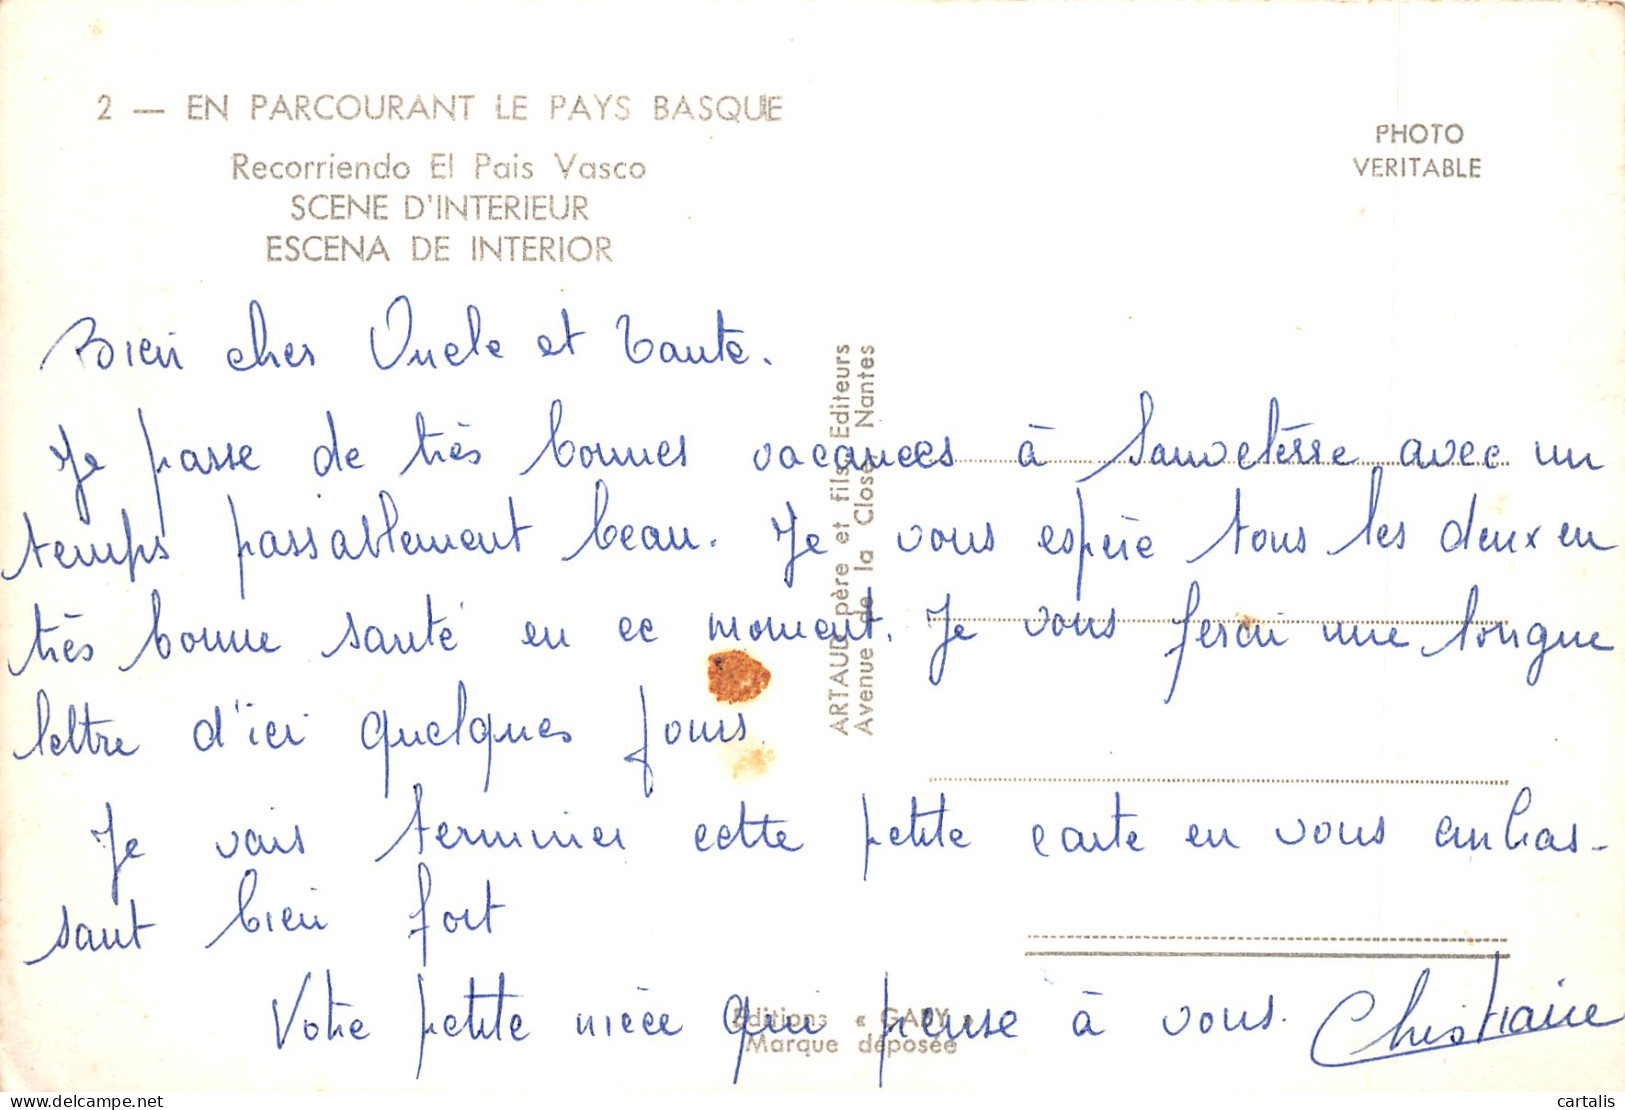 2 — EN PARCOURANT LE PAYS BASQUE
Recorriendo El Pais Vasco
SCENE D'INTERIEUR
ESCENA DE INTERIOR
PHOTO
VERITABLE
Bien chers Oncle et Tante.
Je passe de très bonnes vacances à Sauveterre avec un
temps passablement beau. Je vous espère tous les deux en
très bonne santé en ce moment. Je vous ferai une longue
lettre d'ici quelques jours.
Je vais terminer cette petite carte en vous embras-
sant bien fort
Votre petite nièce qui pense à vous. Christiane
ARTAUD père et fils, Editeurs
Avenue de la Close, Nantes
Editions « GABY »
Marque déposée
delcampe.net
cartalis